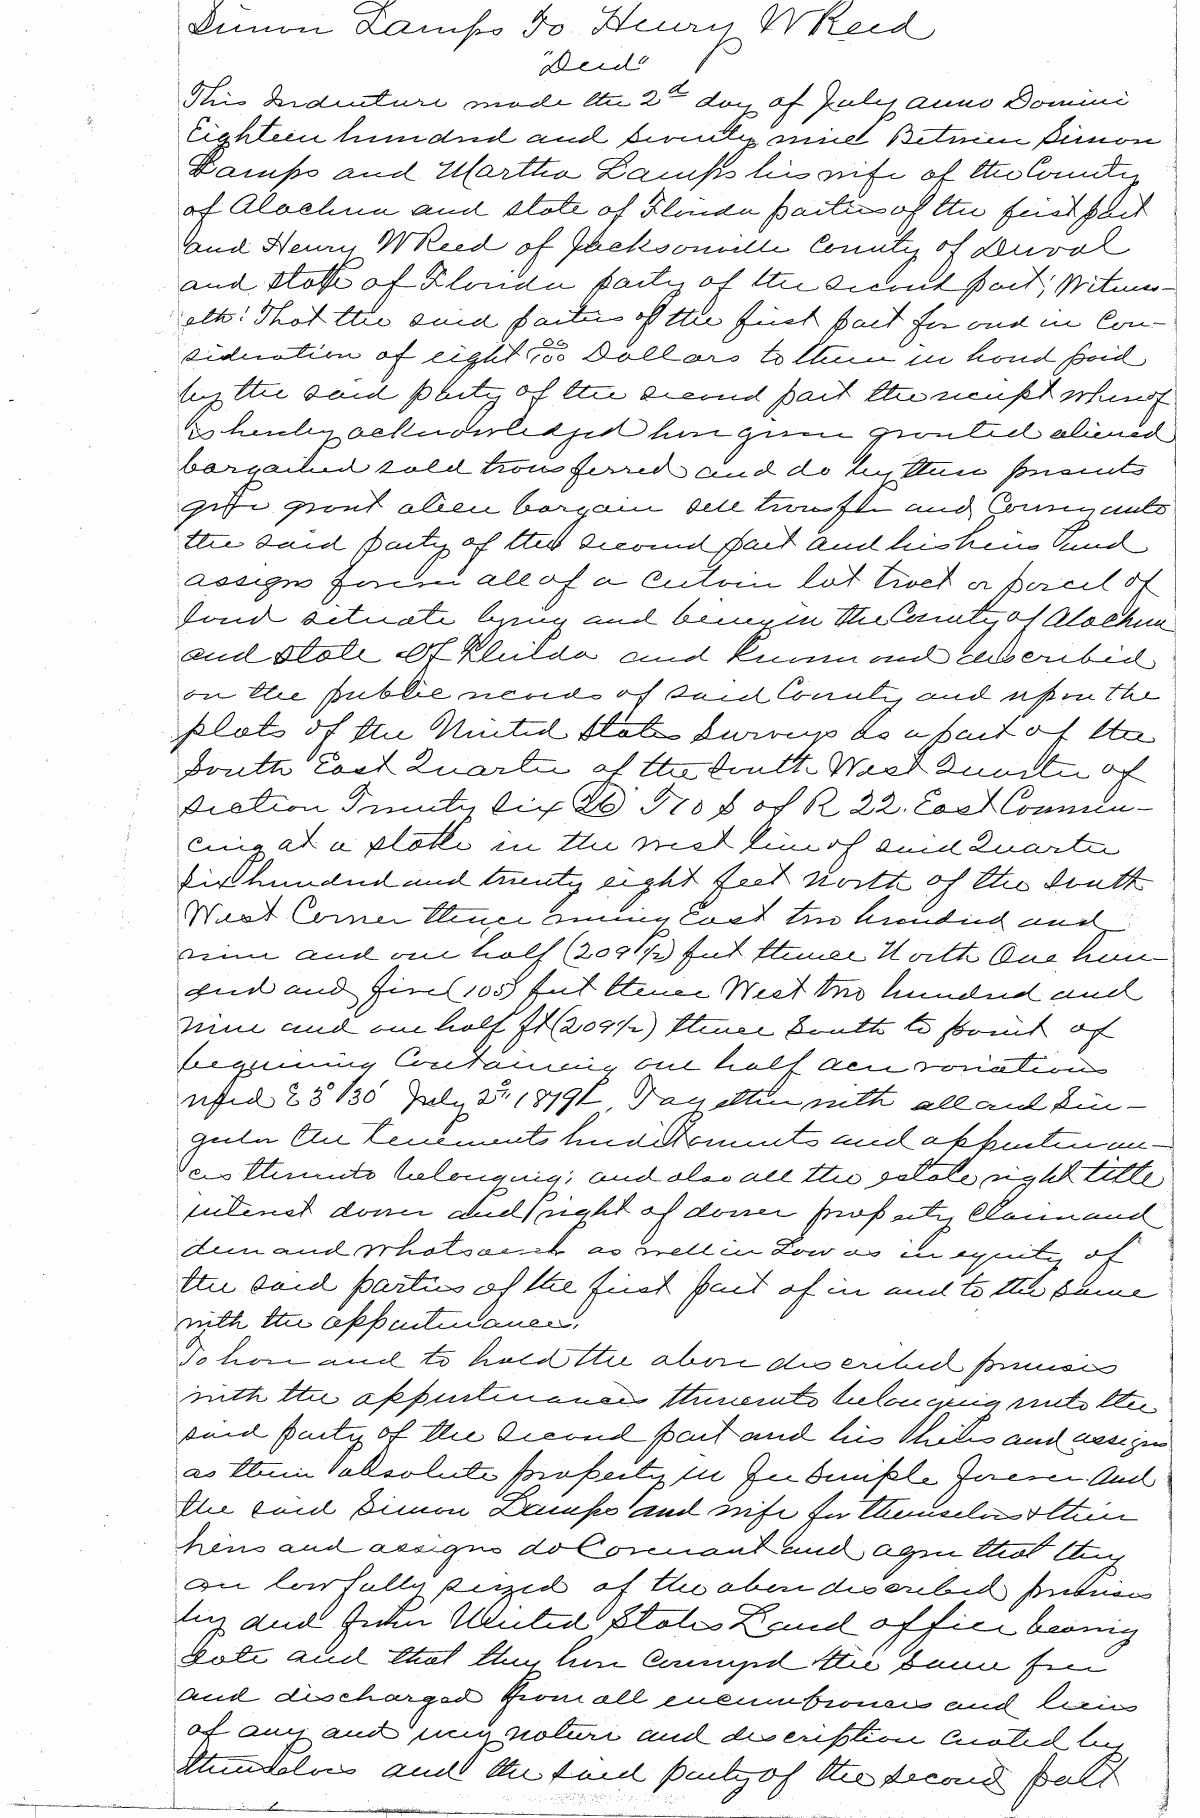 Simon Lamps To Henry W Reed
"Deed"
This Indenture made the 2d day of July anno Domini
Eighteen hundred and seventy nine Between Simon
Lamps and Martha Lamps his wife of the County
of Alachua and state of Florida parties of the first part
and Henry W Reed of Jacksonville County of Duval
and state of Florida party of the second part; Witness-
eth: That the said parties of the first part for and in Con-
sideration of eight 00/100 Dollars to them in hand paid
by the said party of the second part the receipt whereof
is hereby acknowledged have given granted aliened
bargained sold transferred and do by these presents
give grant alien bargain sell transfer and Convey unto
the said party of the second part and his heirs and
assigns forever all of a certain lot tract or parcel of
land situate lying and being in the County of Alachua
and state of Florida and known and described
on the public records of said County and upon the
plats of the United States Surveys as a part of the
South East Quarter of the South West Quarter of
section Twenty Six 26 T10 S of R 22. East Commen-
cing at a stake in the west line of said Quarter
six hundred and twenty eight feet North of the South
West Corner thence running East two hundred and
nine and one half (209 1/2) feet thence North One hun-
dred and five (105) feet thence West two hundred and
nine and one half ft (209 1/2) thence South to point of
beginning Containing one half acre variation
used 3° 30' July 2d 1879. Together with all and Sin-
gular the tenements hereditaments and appurtenan-
ces thereunto belonging; and also all the estate right title
interest dower and right of dower property Claim and
demand whatsoever as well in Law as in equity of
the said parties of the first part of in and to the same
with the appurtenances.
To have and to hold the above described premises
with the appurtenances thereunto belonging unto the
said party of the second part and his heirs and assigns
as their absolute property in fee simple forever. And
the said Simon Lamps and wife for themselves & their
heirs and assigns do Covenant and agree that they
are lawfully seized of the above described premises
by deed from United States Land office bearing
date and that they have conveyed the same free
and discharged from all encumbrances and liens
of any and every nature and description created by
themselves and the said party of the second part